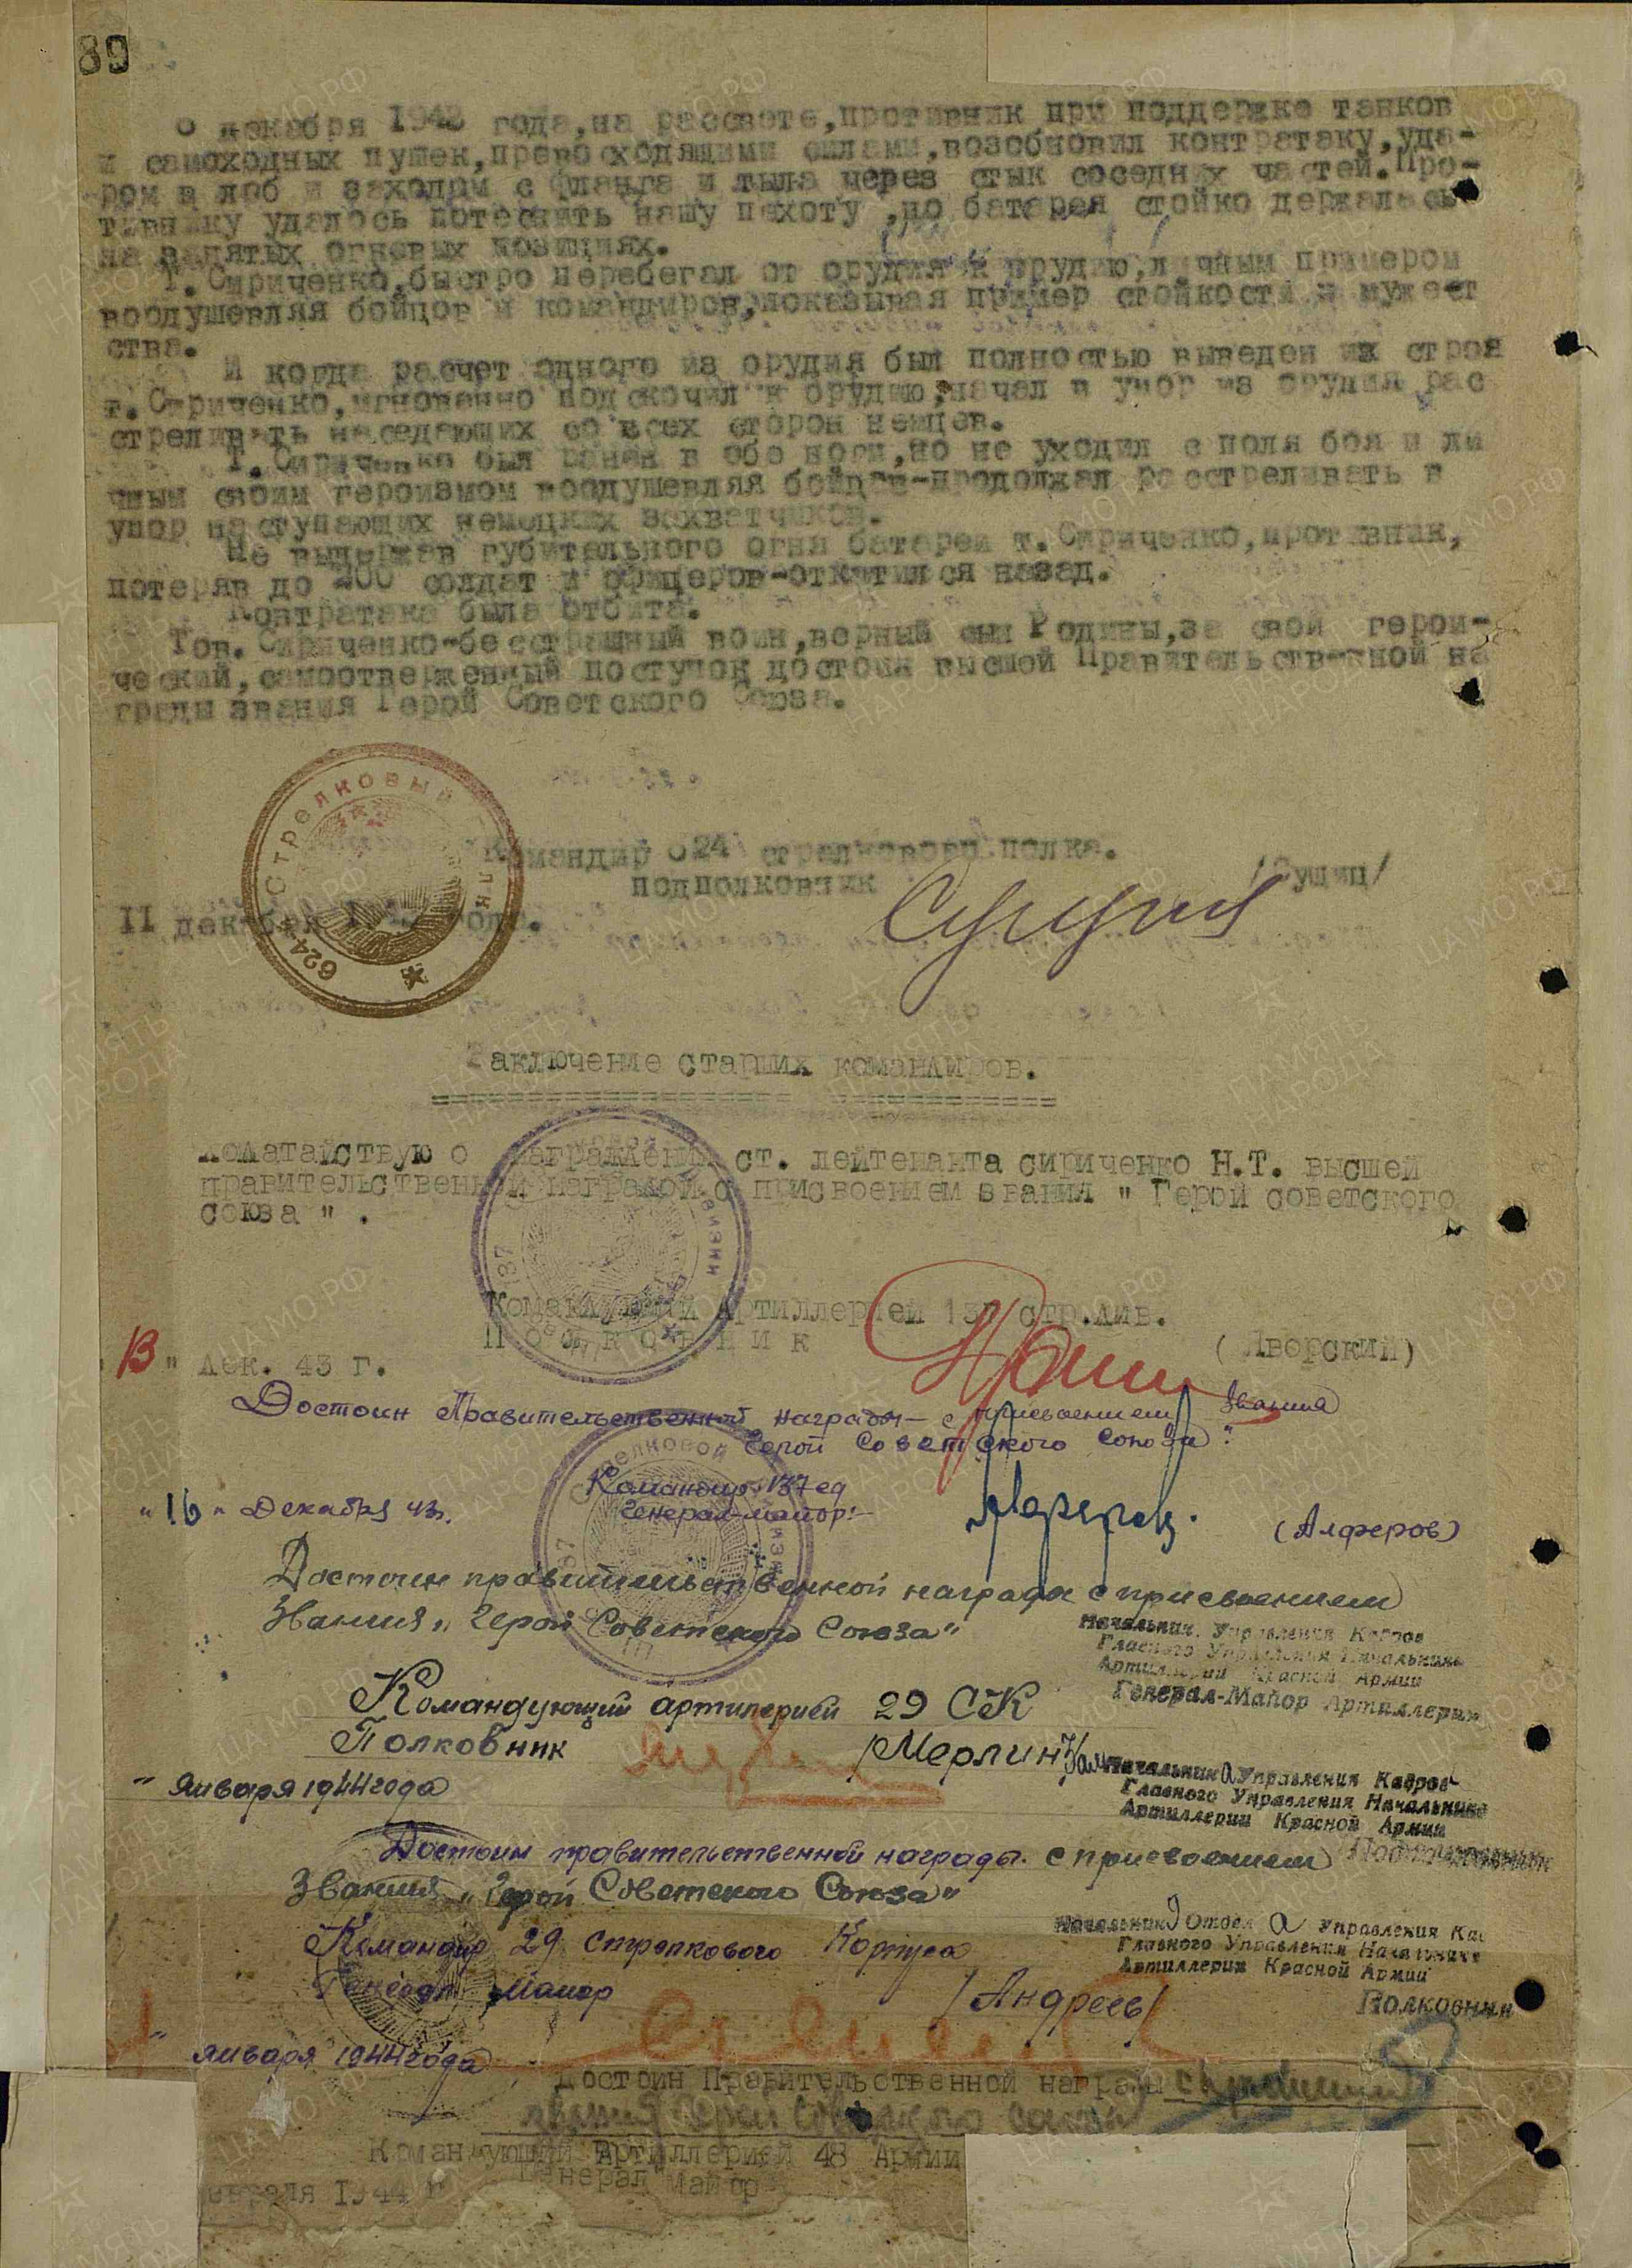 89
декабря 1943 года, на рассвете, противник при поддержке танков
и самоходных пушек, превосходящими силами, возобновил контратаку, уда-
ром в лоб и заходом с фланга и тыла через стык соседних частей. Про-
тивнику удалось потеснить нашу пехоту, но батарея стойко держалась
на занятых огневых позициях.
Т. Сириченко, быстро перебегал от орудия к орудию, личным примером
воодушевляя бойцов и командиров, показывая пример стойкости и мужест
ства.
И когда расчет одного из орудия был полностью выведен их строя
т. Сириченко, мгновенно подскочил к орудию, начал в упор из орудия рас
стреливать наседающих со всех сторон немцев.
Т. Сириченко был ранен в обе ноги, но не уходил с поля боя и ли
чным своим героизмом воодушевляя бойцов-продолжал расстреливать в
упор наступающих немецких захватчиков.
Не выдержав губительного огня батареи т. Сириченко, противник,
потеряв до 200 солдат и офицеров-откатился назад.
Контратака была отбита.
Тов. Сириченко-бесстрашный воин, верный сын Родины, за свой герои-
ческий, самоотверженный поступок достоин высшей Правительственной на
грады звания Герой Советского Союза.
624 Стрелковый
Командир 624 стрелкового полка.
подполковник /Сущиц/
II декабря года.
Заключение старших командиров.
Ходатайствую о награждении ст. лейтенанта сириченко Н.Т. высшей
правительственной наградой с присвоением звания " Герой советского
союза " .
Командующий Артиллерией 137 стр.див.
Полковник (Яворский)
"13" дек. 43 г.
Достоин Правительственной награды – с присвоением звания
Герой Советского Союза".
Командир 137 сд
Генерал-майор:–
"16" Декабря 43г. (Алферов)
Достоин правительственной награды с присвоением
Звания „ Герой Советского Союза"
Начальник Управления Кадров
Главного Управления Начальника
Артиллерии Красной Армии
Генерал-Майор Артиллерии
Командующий артилерией 29 СК
Полковник /Мерлин/
" Января 1944 года
Зам Начальника Управления Кадров
Главного Управления Начальника
Артиллерии Красной Армии
Достоин правительственной награды. с присвоением
Звания „ Герой Советского Союза"
Командир 29 Стрелкового Корпуса
Генерал Майор /Андреев/
Начальник Отдела Управления Ка
Главного Управления Начальника
Артиллерии Красной Армии
Полковник
" января 1944 года
Достоин Правительственной награды с присвоением
звания Герой Советского Союза
Командующий Артиллерией 48 Армии
Генерал Майор
евраля 1944 г